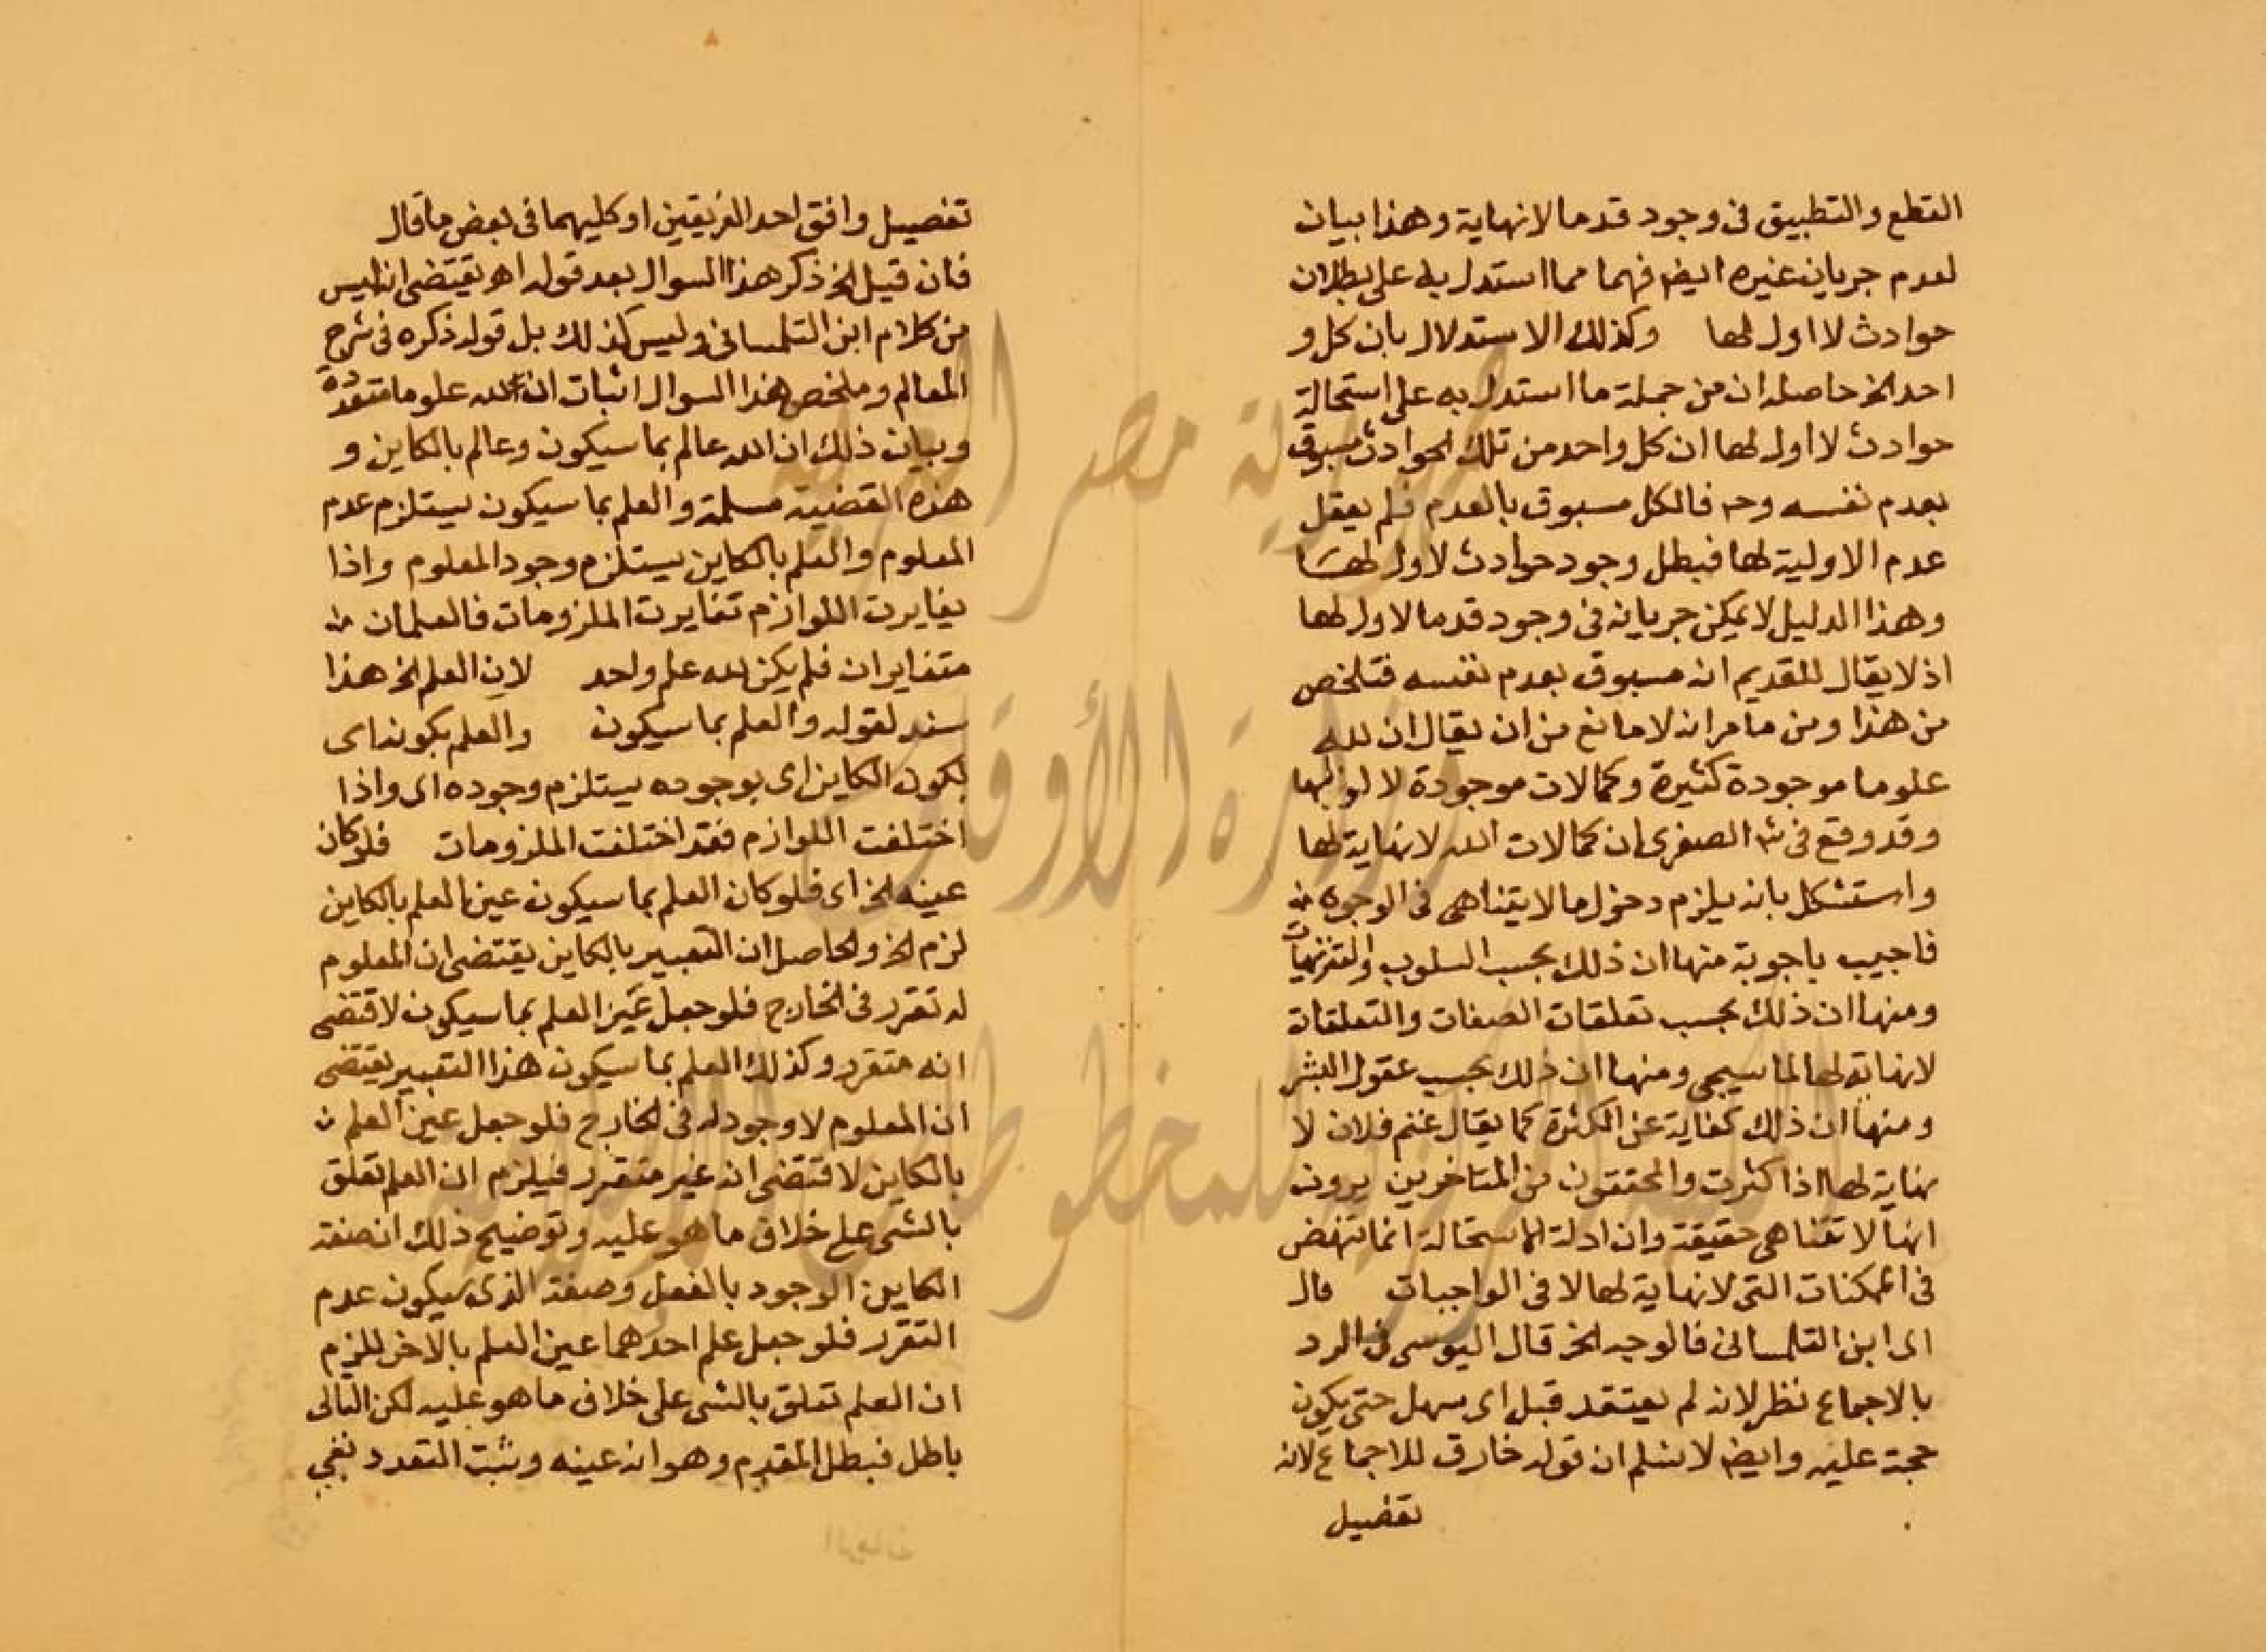 القطع والتطبيق فى وجود قدما لا نهاية وهذا بيان
لعدم جريان غيره ايض فيهما مما استدل به على بطلان
حوادث لا اول لها وكذلك الاستدلال بان كل و
احد الخ حاصله ان من جملة ما استدل به على استحالة
حوادث لا اول لها ان كل واحد من تلك الحوادث مسبوق
بعدم نفسه وح فالكل مسبوق بالعدم فلم يعقل
عدم الاولية لها فبطل وجود حوادث لا ول لها
وهذا الدليل لا يمكن جريانه فى وجود قدما لا ول لها
اذ لا يقال للقديم انه مسبوق بعدم نفسه فتلخص
من هذا ومن ما مر انه لا مانع من ان يقال ان لله
علوما موجودة كثيرة وكمالات موجودة لا اول لها
وقد وقع فى ش الصغرى ان كمالات الله لا نهاية لها
واستشكل بانه يلزم دخول ما لا يتناهى فى الوجود
فاجيب باجوبة منها ان ذلك بحسب السلوب والتنزيهات
ومنها ان ذلك بحسب تعلقات الصفات والتعلقات
لا نهاية لها لما سيجى ومنها ان ذلك بحسب عقول البشر
ومنها ان ذلك كناية عن الكثرة كما يقال غنم فلان لا
نهاية لها اذا كثرت والمحققون من المتاخرين يرون
انها لا تتناهى حقيقة وان ادلة الاستحالة انما تنهض
فى الممكنات التى لا نهاية لها لا فى الواجبات قال
اى ابن التلمسانى فالوجه الخ قال اليوسى فى الرد
بالاجماع نظر لانه لم يعتقد قبل اى سهل حتى يكون
حجة عليه وايض لا نسلم ان قوله خارق للاجماع لانه
تفصيل
تفصيل وافق احد الفريقين او كليهما فى بعض ما قال
فان قيل الخ ذكر هذا السوال بعد قوله اهـ يقتضى انه ليس
من كلام ابن التلمسانى وليس كذلك بل قوله ذكره فى شرح
المعالم وملخص هذا السوال اثبات ان لله علوما متعددة
وبيان ذلك ان الله عالم بما سيكون وعالم بالكاين و
هذه القضية مسلمة والعلم بما سيكون يستلزم عدم
المعلوم والعلم بالكاين يستلزم وجود المعلوم واذا
تغايرت اللوازم تغايرت الملزومات فالعلمان
متغايران فلم يكن لله علم واحد لان العلم الخ هذا
سند لقوله والعلم بما سيكون والعلم بكونه اى
بكون الكاين اى بوجوده يستلزم وجوده اى واذا
اختلفت اللوازم فقد اختلفت الملزومات فلو كان
عينه الخ اى فلو كان العلم بما سيكون عين العلم بالكاين
لزم الخ والحاصل ان التعبير بالكاين يقتضى ان المعلوم
له تقرر فى الخارج فلو جعل عين العلم بما سيكون لاقتضى
انه متقرر وكذلك العلم بما سيكون هذا التعبير يقتضى
ان المعلوم لا وجود له فى الخارج فلو جعل عين العلم
بالكاين لاقتضى انه غير متقرر فيلزم ان العلم تعلق
بالشى على خلاف ما هو عليه وتوضيح ذلك ان صفة
الكاين الوجود بالفعل وصفة الذى سيكون عدم
التقرر فلو جعل علم احدهما عين العلم بالآخر للزم
ان العلم تعلق بالشى على خلاف ما هو عليه لكن التالى
باطل فبطل المقدم وهو انه عينه وثبت التعدد نفى
جمهورية مصر العربية
وزارة الأوقاف
المكتبة المركزية للمخطوطات الإسلامية